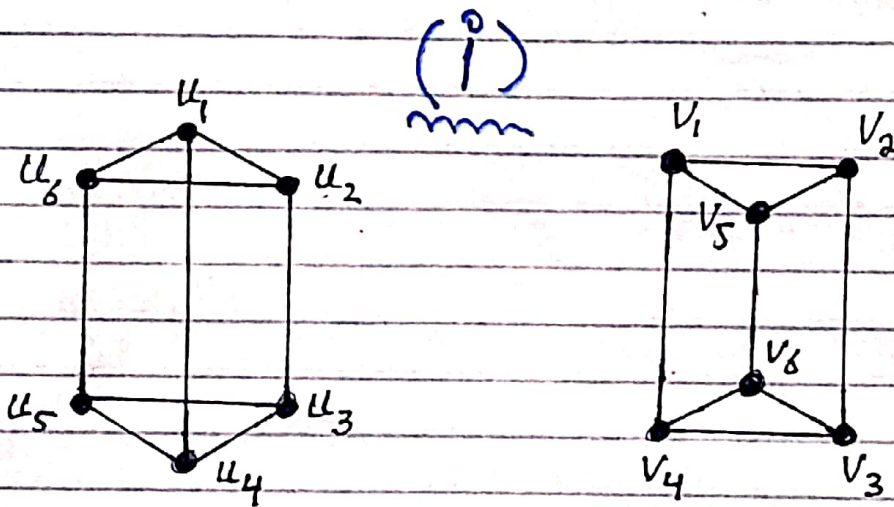 (i)
u₁
u₆ u₂
u₅ u₃
u₄
V₁ V₂
V₅
V₆
V₄ V₃